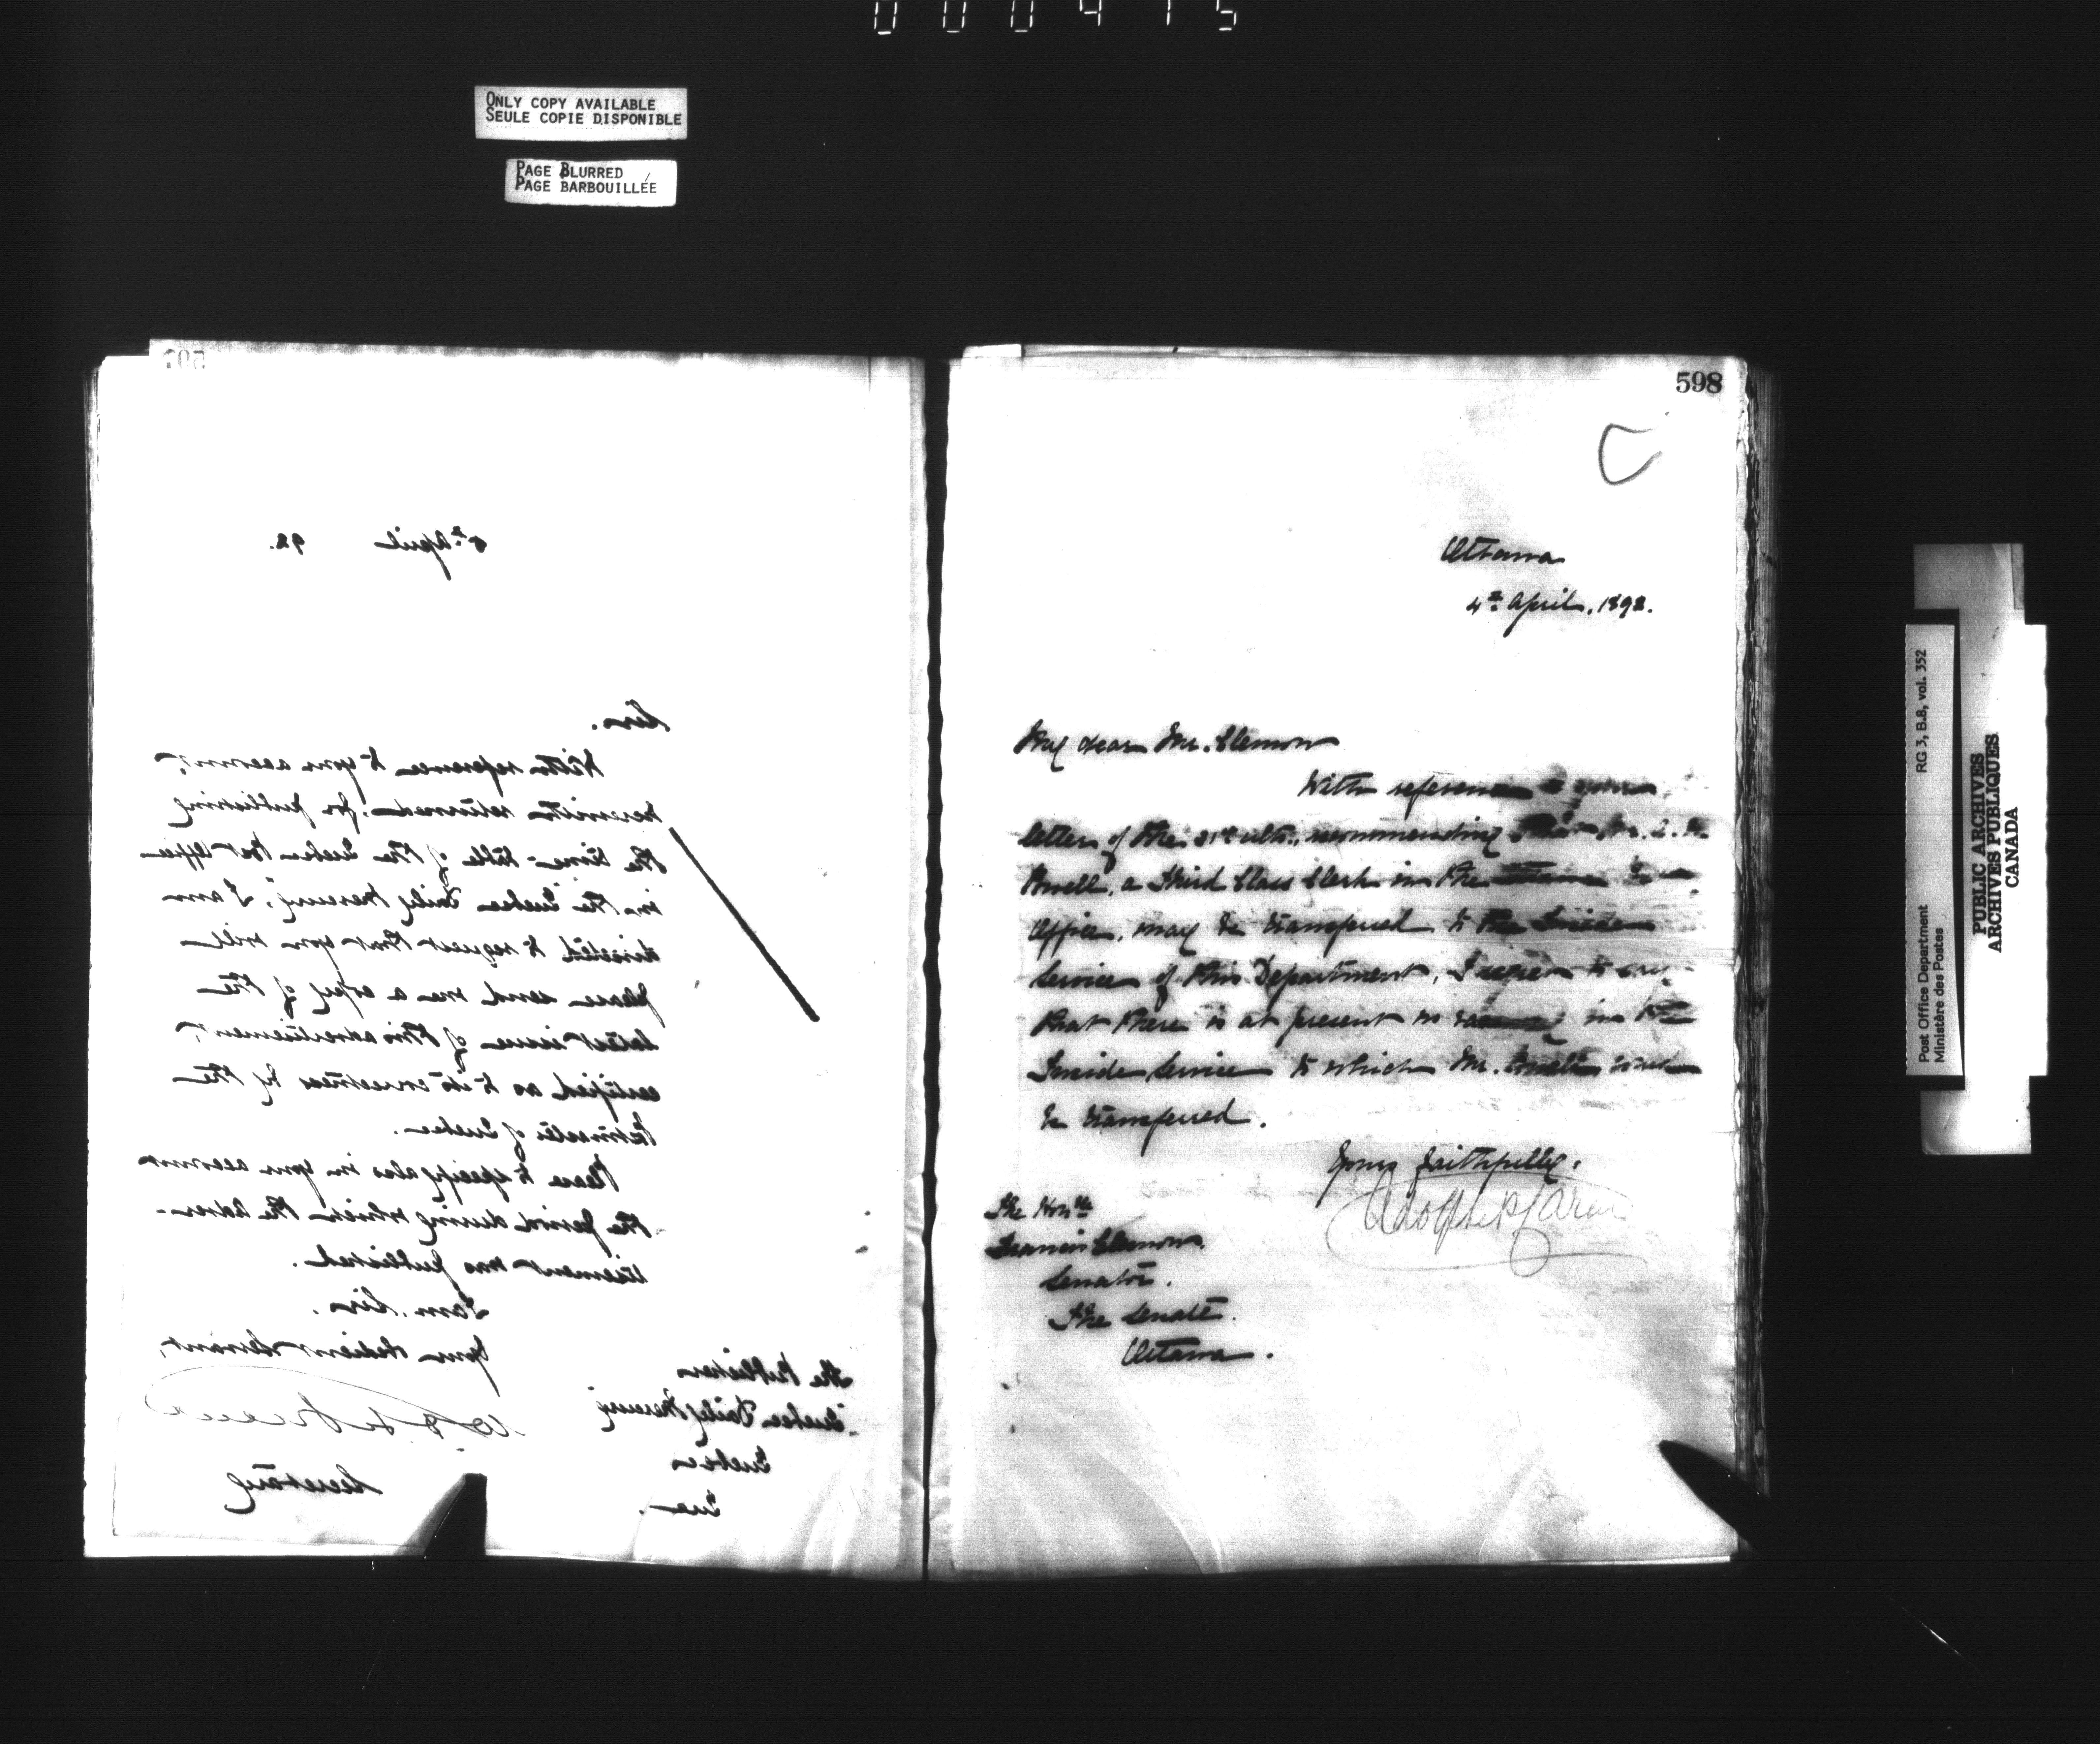 000415
ONLY COPY AVAILABLE
SEULE COPIE DISPONIBLE
PAGE BLURRED
PAGE BARBOUILLÉE
4th April 92.
Sirs.
With reference to your account,
herewith returned, for publishing
the time-table of the Quebec Post Office
in the Quebec Daily Mercury, I am
directed to request that you will
please send me a copy of the
latest issue of this advertisement,
certified as to its correctness by the
Postmaster of Quebec.
Please to specify also in your account
the period during which the adver-
tisement was published.
I am, Sirs,
Your obedient Servant,
Secretary
The Publishers
Quebec Daily Mercury
Quebec
Que.
598
Ottawa
4th April, 1892.
My dear Mr. Clemow
With reference to your
letter of the 31st ulto., recommending that Mr.
a Third Class Clerk in the
Office, may be transferred to the Inside
Service of this Department, I regret to say
that there is at present no vacancy in the
Inside Service to which Mr. could
be transferred.
Yours faithfully,
Adolphe P. Caron
The Honble
Francis Clemow,
Senator.
The Senate.
Ottawa.
Post Office Department RG 3, B.8, vol. 352
Ministère des Postes
PUBLIC ARCHIVES
ARCHIVES PUBLIQUES
CANADA